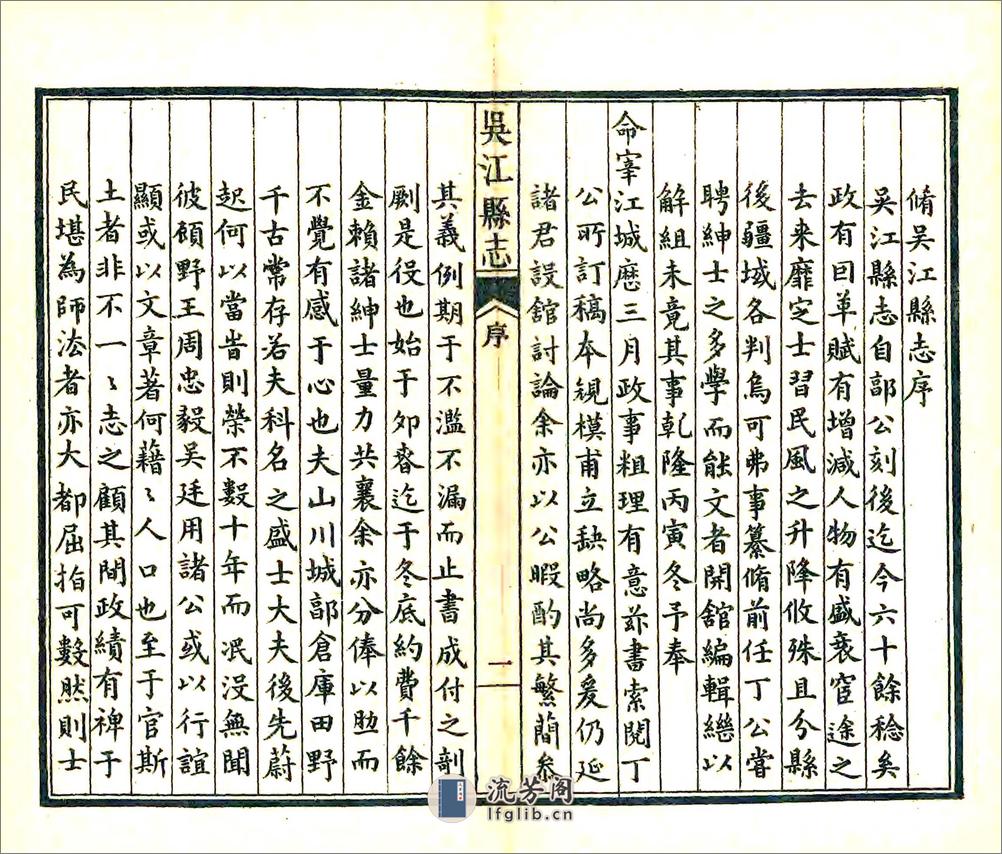 脩吳江縣志序
吳江縣志自郭公刻後迄今六十餘稔矣
政有因革賦有增減人物有盛衰宦途之
去来靡定士習民風之升降攸殊且分縣
後疆域各判烏可弗事纂脩前任丁公嘗
聘紳士之多學而能文者開舘編輯繼以
解組未竟其事乾隆丙寅冬予奉
命宰江城歷三月政事粗理有意玆書索閱丁
公所訂稿本規模甫立缺略尚多爰仍延
諸君設舘討論余亦以公暇酌其繁簡叅
吳江縣志
序
一
其義例期于不濫不漏而止書成付之剞
劂是役也始于夘春迄于冬底約費千餘
金賴諸紳士量力共襄余亦分俸以助而
不覺有感于心也夫山川城郭倉庫田野
千古常存若夫科名之盛士大夫後先蔚
起何以當旹則榮不數十年而泯没無聞
彼顧野王周忠毅吳廷用諸公或以行誼
顯或以文章著何藉〻人口也至于官斯
土者非不一〻志之顧其間政績有裨于
民堪為師法者亦大都屈指可數然則士
流芳阁
lfglib.cn